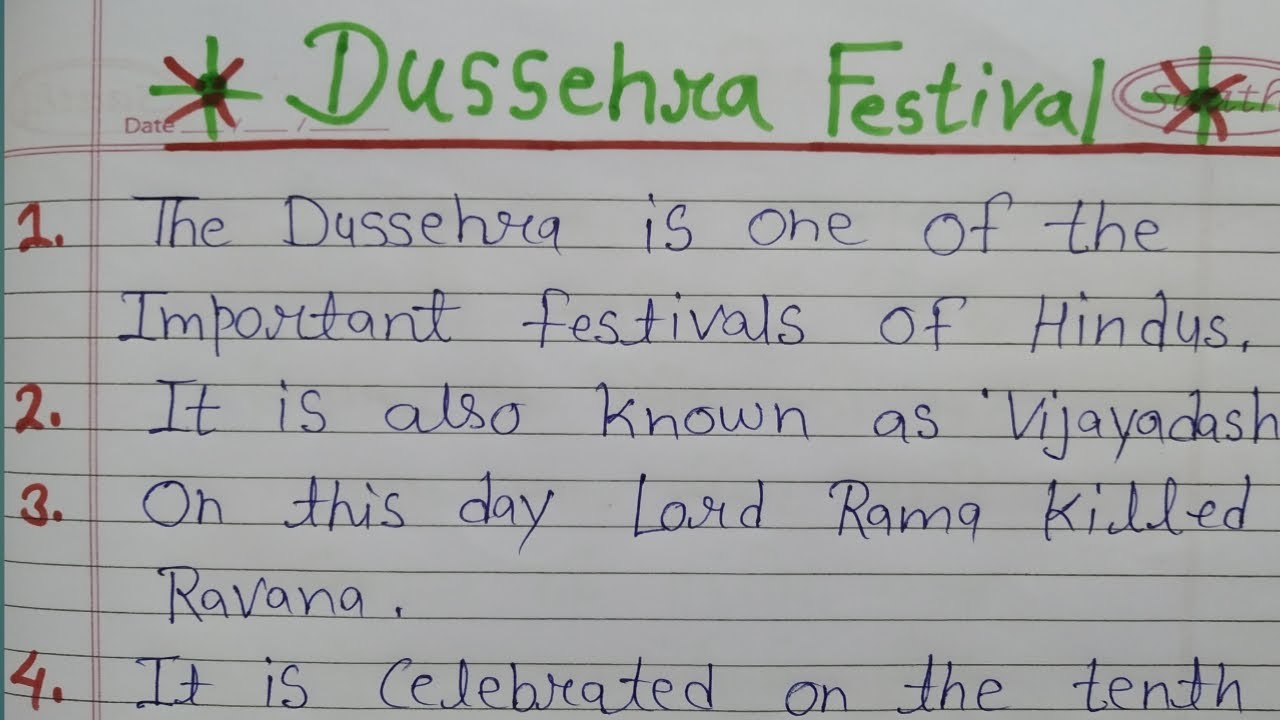 Dussehra Festival
Date
1. The Dussehra is one of the
Important festivals of Hindus.
2. It is also known as 'Vijayadash
3. On this day Lord Rama killed
Ravana.
4. It is Celebrated on the tenth